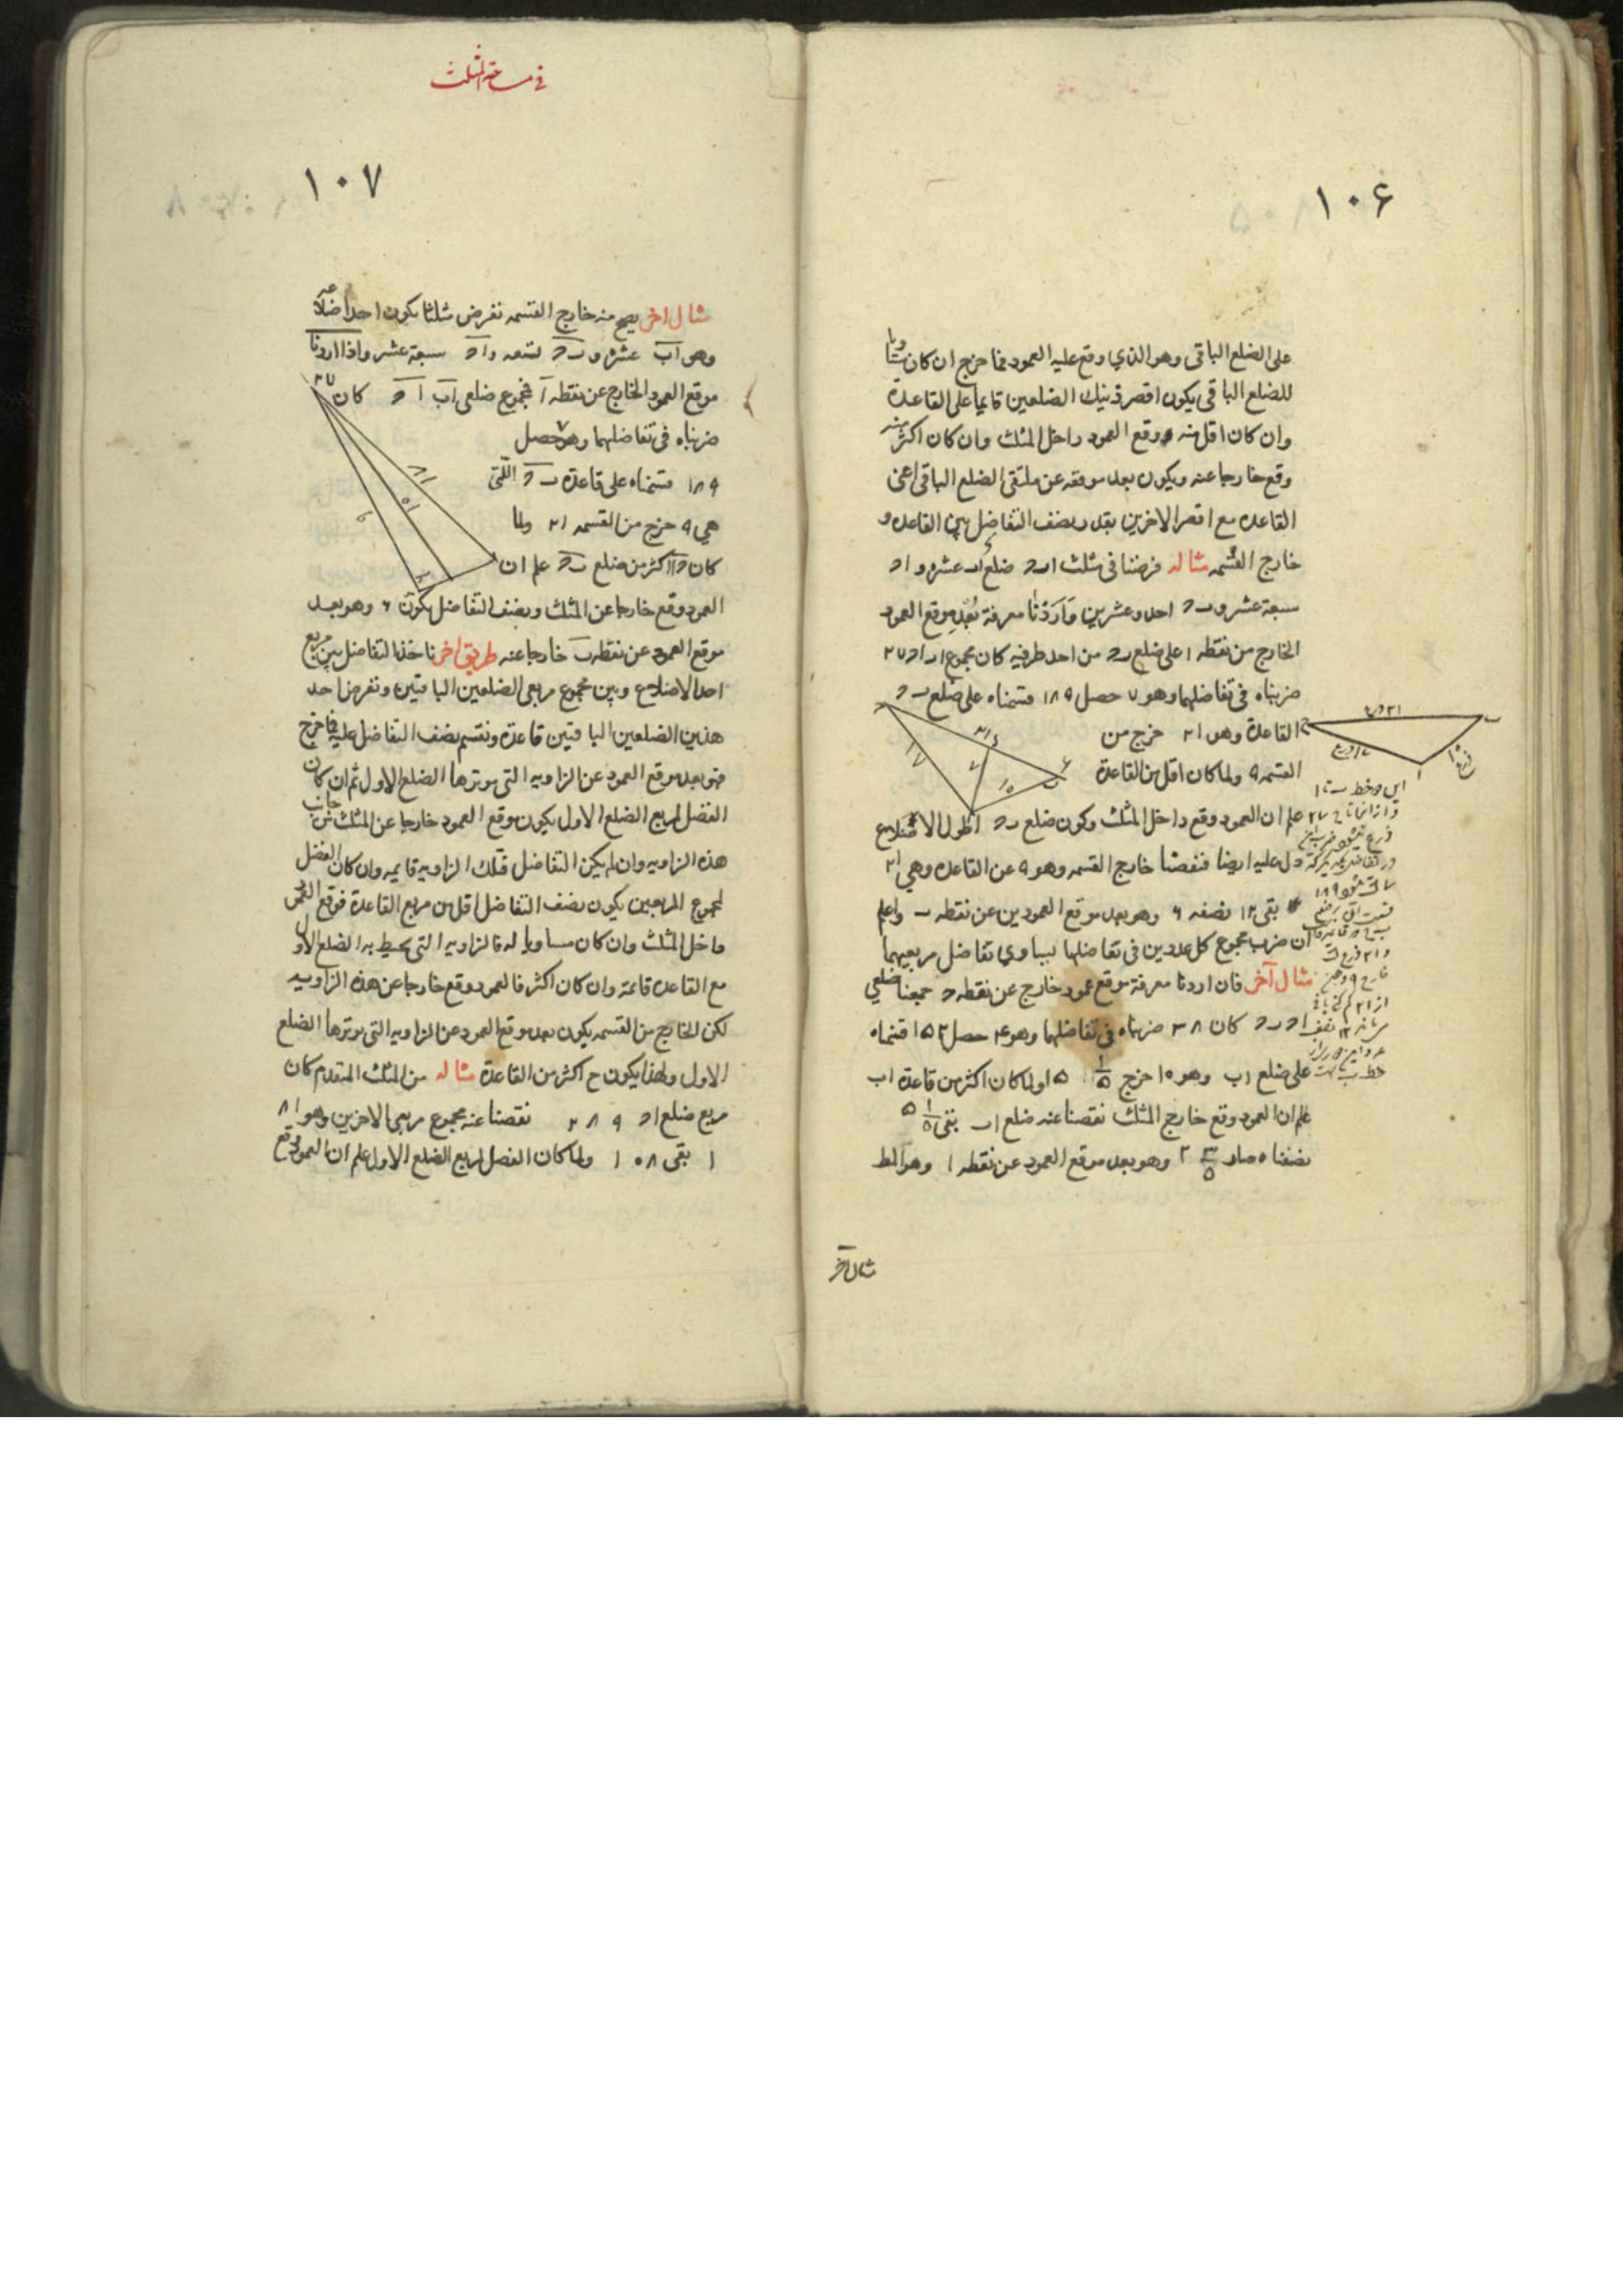 ١٠٦
على الضلع الباقى وهو الذي وقع عليه العمود فما خرج ان كان مساويا
للضلع الباقى يكون اقصر ذينك الضلعين قايما على القاعدة
وان كان اقل منه وقع العمود داخل المثلث وان كان اكثر منه
وقع خارجا عنه ويكون بعد موقعه عن ملتقى الضلع الباقى اعنى
القاعده مع اقصر الاخرين بقدر نصف التفاضل بين القاعده و
خارج القسمه مثاله فرضنا فى مثلث ا ب ح ضلع ا ب عشره و ا ح
سبعة عشر و ب ح احد وعشرين وَاَرَدْنا معرفة بُعْدِ موقع العمود
الخارج من نقطه ا على ضلع ب ح من احد طرفيه كان مجموع ا ب ا ح ٢٧
ضربناه فى تفاضلهما وهو ٧ حصل ١٨٩ قسمناه على ضلع ب ح
القاعدة وهو ٢١ خرج من
القسمه ٩ ولما كان اقل من القاعدة
علم ان العمود وقع داخل المثلث وكون ضلع ب ح اطول الاضلاع
دل عليه ايضا فنقصنا خارج القسمه وهو ٩ عن القاعده وهي ٢١
بقى ١٢ نصفه ٦ وهو بعد موقع العمودين عن نقطه ب واعلم
ان ضرب مجموع كل عددين فى تفاضلها يساوي تفاضل مربعيهما
مثال آخر فان اردنا معرفة موقع عمود خارج عن نقطه ح جمعنا ضلعي
ا ح ب ح كان ٣٨ ضربناه فى تفاضلهما وهو ۴ حصل ١٥٢ قسمناه
على ضلع ا ب وهو ١٠ خرج ١/٥ ١٥ ولما كان اكثر من قاعدة ا ب
علم ان العمود وقع خارج المثلث نقصنا عنه ضلع ا ب بقى ١/٥ ٥
نصفناه صار ٣/٥ ٢ وهو بعد موقع العمود عن نقطه ا وهو المط
مثال آخر
فى مساحة المثلث
١٠٧
مثال اخر يصح منه خارج القسمه نفرض مثلثا يكون احد اضلاعه
وهو ا ب عشره و ب ح تسعه و ا ح سبعة عشر واذا اردنا
موقع العمود الخارج عن نقطه ا فمجموع ضلعى ا ب ا ح كان ٢٧
ضربناه فى تفاضلهما وهو ٧ حصل
١٨٩ قسمناه على قاعدة ب ح اللّتى
هي ٩ خرج من القسمه ٢١ ولما
كان اكثر من ضلع ب ح علم ان
العمود وقع خارجا عن المثلث ونصف التفاضل يكون ٦ وهو بعد
موقع العمود عن نقطه ب خارجا عنه طريق اخر ناخذ التفاضل بين مربع
احد الاضلاع وبين مجموع مربعى الضلعين الباقيين ونفرض احد
هذين الضلعين الباقيين قاعدة ونقسم نصف التفاضل عليه فما خرج
فهو بعد موقع العمود عن الزاويه التى يوترها الضلع الاول ثم ان كان
الفضل لمربع الضلع الاول يكون موقع العمود خارجا عن المثلث من جانب
هذه الزاويه وان لم يكن التفاضل فتلك الزاويه قايمه وان كان الفضل
لمجموع المربعين يكون نصف التفاضل اقل من مربع القاعدة فوقع العمود
داخل المثلث وان كان مساويا له فالزاويه التى يحيط به الضلع الاول
مع القاعده قائمة وان كان اكثر فالعمود وقع خارجا عن هذه الزاويه
لكن الخارج من القسمه يكون بعد موقع العمود عن الزاويه التى يوترها الضلع
الاول ولهذا يكون ح اكثر من القاعدة مثاله من المثلث المتقدم كان
مربع ضلع ا ح ٢٨٩ نقصنا عنه مجموع مربعي الاخرين وهو ١٨
١ بقى ١٠٨ ولما كان الفضل لمربع الضلع الاول علم ان العمود وقع